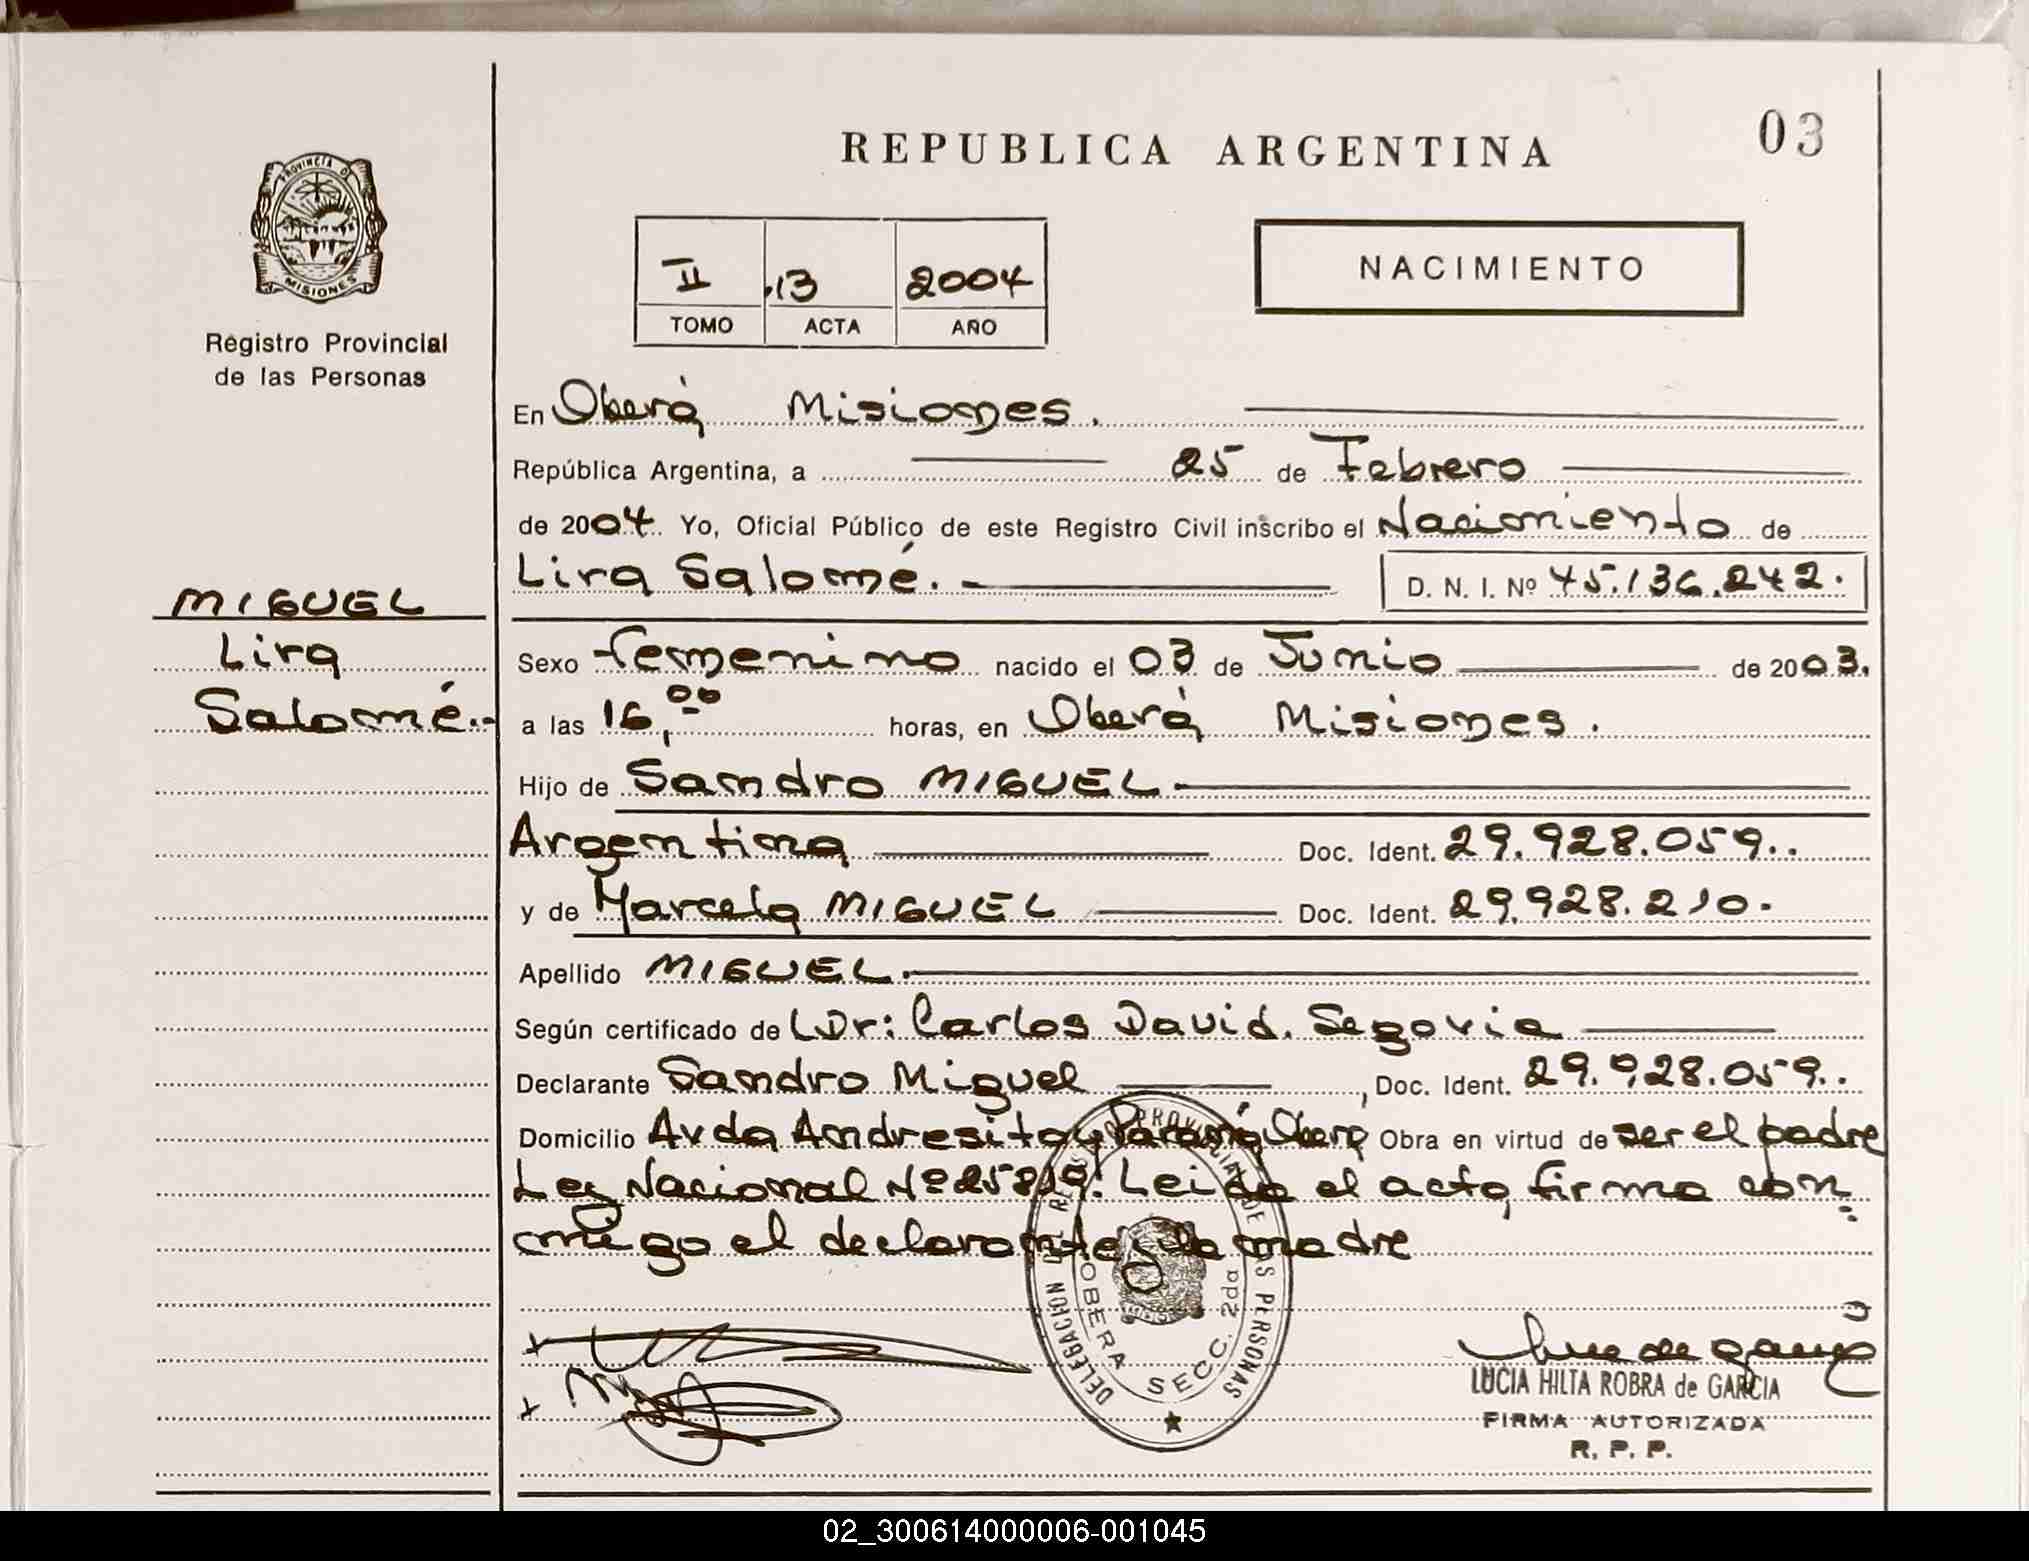 03
REPUBLICA ARGENTINA
PROVINCIA DE
MISIONES
Registro Provincial
de las Personas
II 13 2004
TOMO ACTA AÑO
NACIMIENTO
En Oberá Misiones.
República Argentina, a 25 de Febrero
de 2004. Yo, Oficial Público de este Registro Civil inscribo el Nacimiento de
Lira Salomé. D. N. I. Nº 45.136.242.
MIGUEL
Lira
Salomé.-
Sexo femenino nacido el 03 de Junio de 2003.
a las 16,00 horas, en Oberá Misiones.
Hijo de Sandro MIGUEL
Argentina Doc. Ident. 29.928.059..
y de Marcela MIGUEL Doc. Ident. 29.928.210.
Apellido MIGUEL.
Según certificado de Dr: Carlos David. Segovia
Declarante Sandro Miguel, Doc. Ident. 29.928.059..
Domicilio Avda Andresito y Paraná Oberá Obra en virtud de ser el padre
Ley Nacional Nº 25819. Leida el acta, firma con
migo el declarante y la madre
DELEGACION DEL REGISTRO PROVINCIAL DE LAS PERSONAS
OBERA SECC. 2da
LUCIA HILTA ROBRA de GARCIA
FIRMA AUTORIZADA
R. P. P.
02_300614000006-001045